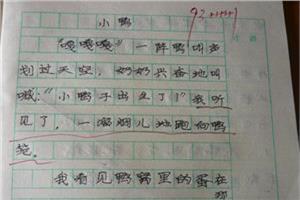 小鸭
92
"嘎嘎嘎"一阵鸭叫声
划过天空,奶奶兴奋地叫
喊:"小鸭子出生了!"我听
见了,一溜烟儿地跑向鸭
笼。
我看见鸭窝里的蛋在
那